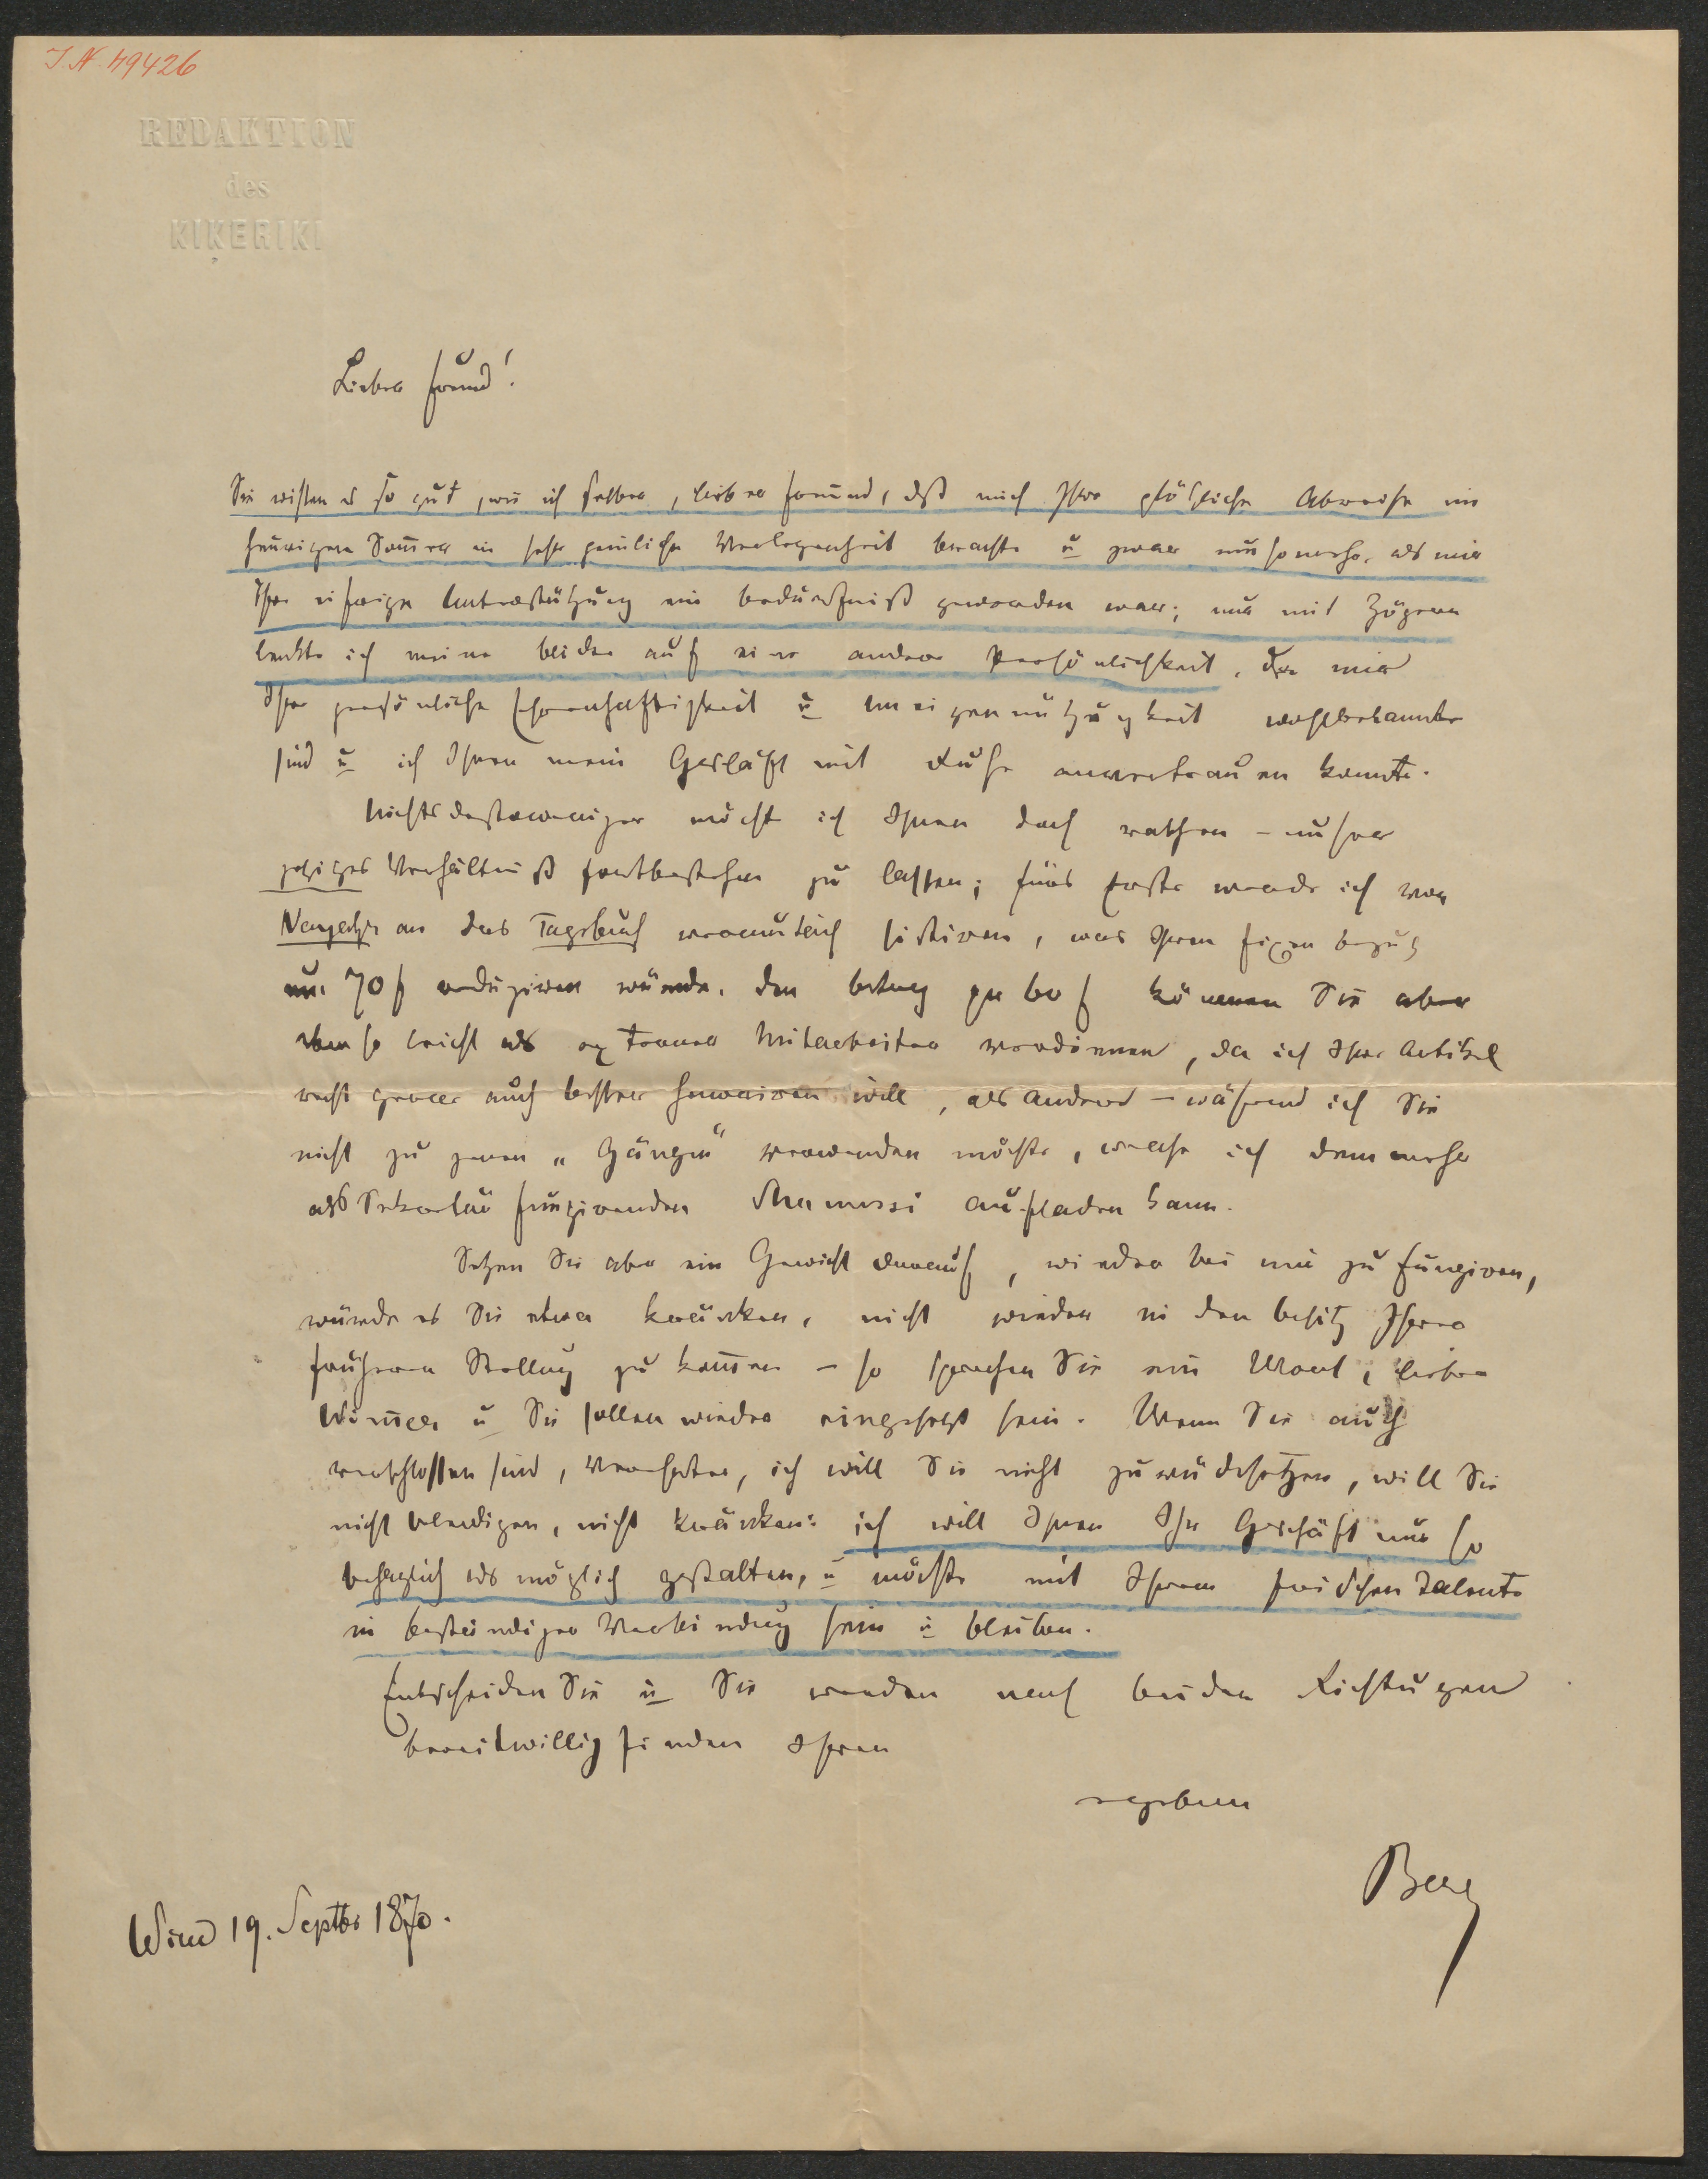 I. N. 49426
REDAKTION
des
KIKERIKI
Lieber Freund!
Sie wissen es so gut, wie ich selber, lieber Freund, daß mich Ihre plötzliche Abreise im
heurigen Som̅er in sehr peinliche Verlegenheit brachte u zwar umsomehr, als mir
Ihre eifrige Unterstützung ein Bedürfniß geworden war; nur mit Zögern
lenkte ich meine Blicke auf eine andere Persönlichkeit, da mir
Ihre persönliche Ehrenhaftigkeit u Uneigennützigkeit wohlbekannt
sind u ich Ihnen mein Geschäft mit Ruhe anvertrauen konnte.
Nichtsdestoweniger möchte ich Ihnen doch rathen – unser
jetziges Verhältniß fortbestehen zu lassen; fürs Erste werde ich von
Neujahr an das Tagebuch vermutlich sistiren, was Ihren fixen Bezug
um 70 f reduziren würde. Den Betrag per 60 f können Sie aber
eben so leicht als externer Mitarbeiter verdienen, da ich Ihre Artikel
recht gerne auch besser honoriren will, als andere – während ich Sie
nicht zu jenen „Gängen" verwenden möchte, welche ich dem mehr
als Sekretär fungirenden aufladen kann.
Setzen Sie aber ein Gewicht darauf, wieder bei mir zu fungiren,
würde es Sie etwa kränken, nicht wieder in den Besitz Ihrer
früheren Stellung zu kom̅en – so sprechen Sie ein Wort, lieber
u Sie sollen wieder eingesetzt sein. Wenn Sie auch
verschlossen sind, Verehrter, ich will Sie nicht zurücksetzen, will Sie
nicht beleidigen, nicht kränken: ich will Ihnen Ihr Geschäft nur so
behaglich als möglich gestalten, u möchte mit Ihrem frischen Talente
in beständiger Verbindung sein u bleiben.
Entscheiden Sie u Sie werden nach beiden Richtungen
bereitwillig finden Ihren
ergebenen
Berg
Wien 19. Septbr 1870.